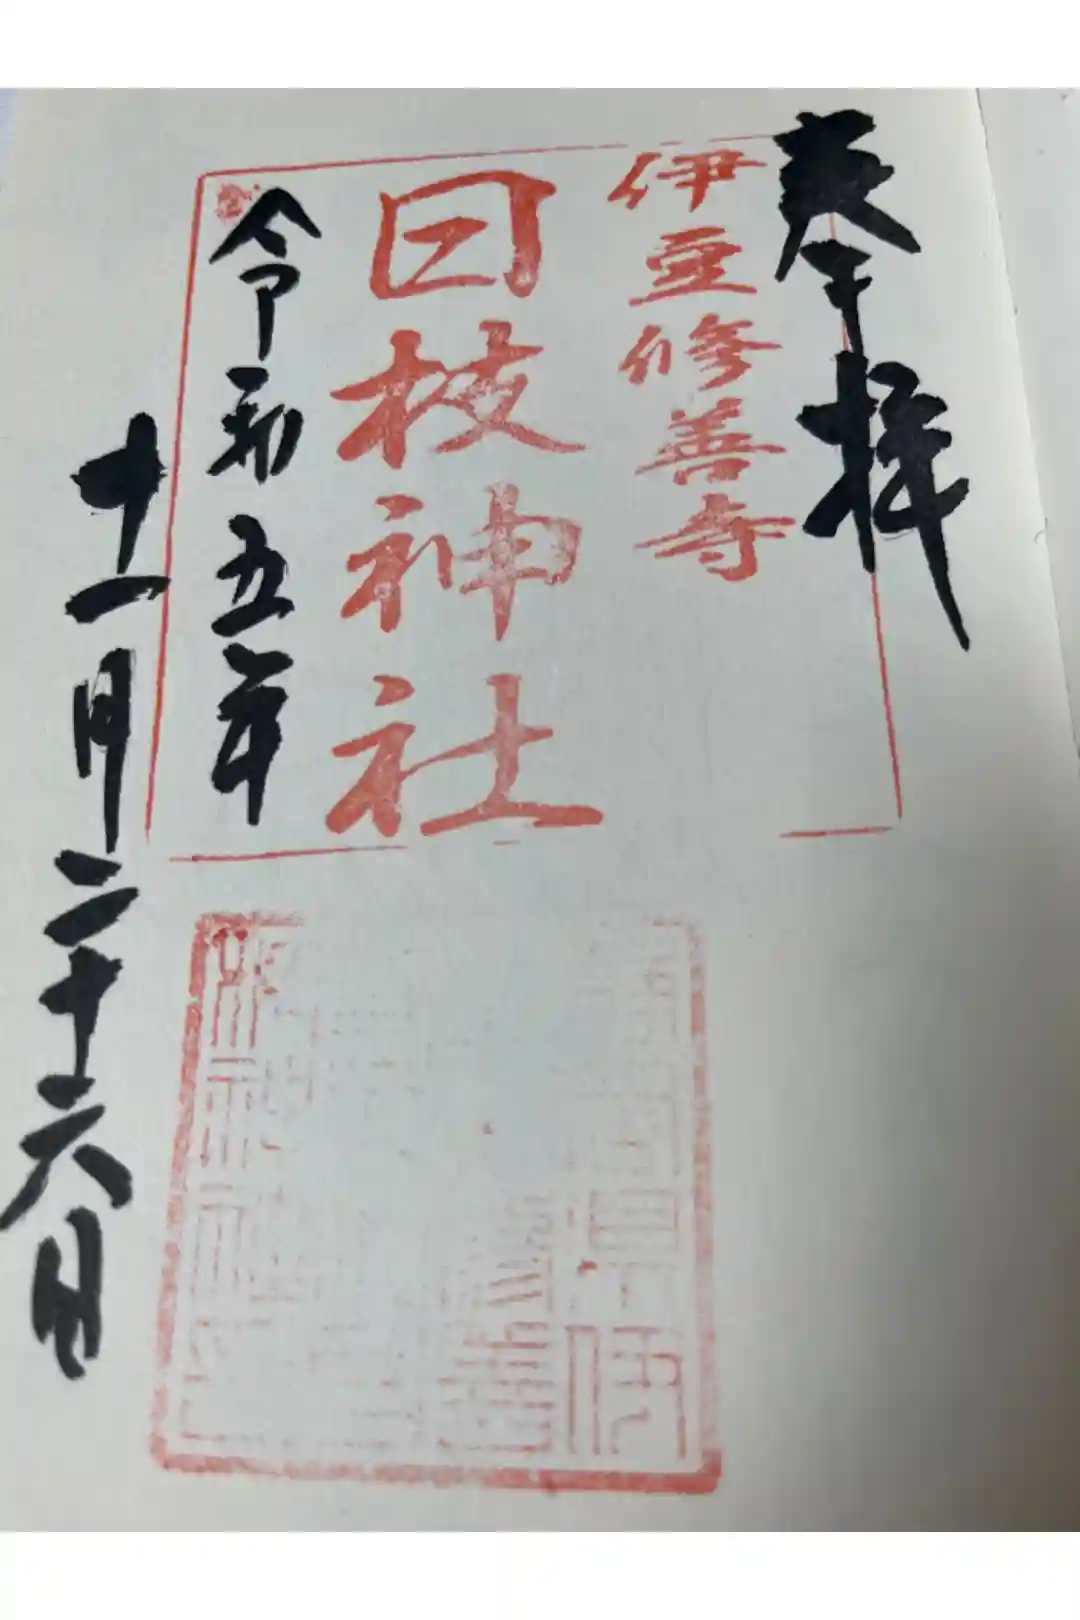 奉拝
伊豆修善寺
日枝神社
令和五年
十一月二十六日